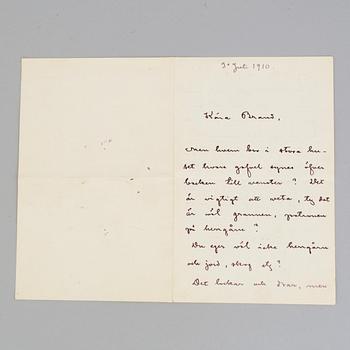 30 Juli 1910.
Kära Brand,
Men hvem bor i stora hu-
set hvars gafvel synes öfver
backen till venster? Det
är vigtigt att veta, ty det
är väl grannen, patronen
på herrgårn?
Du eger väl icke herrgårn
och jord, skog etc?
Det lockar och drar, men